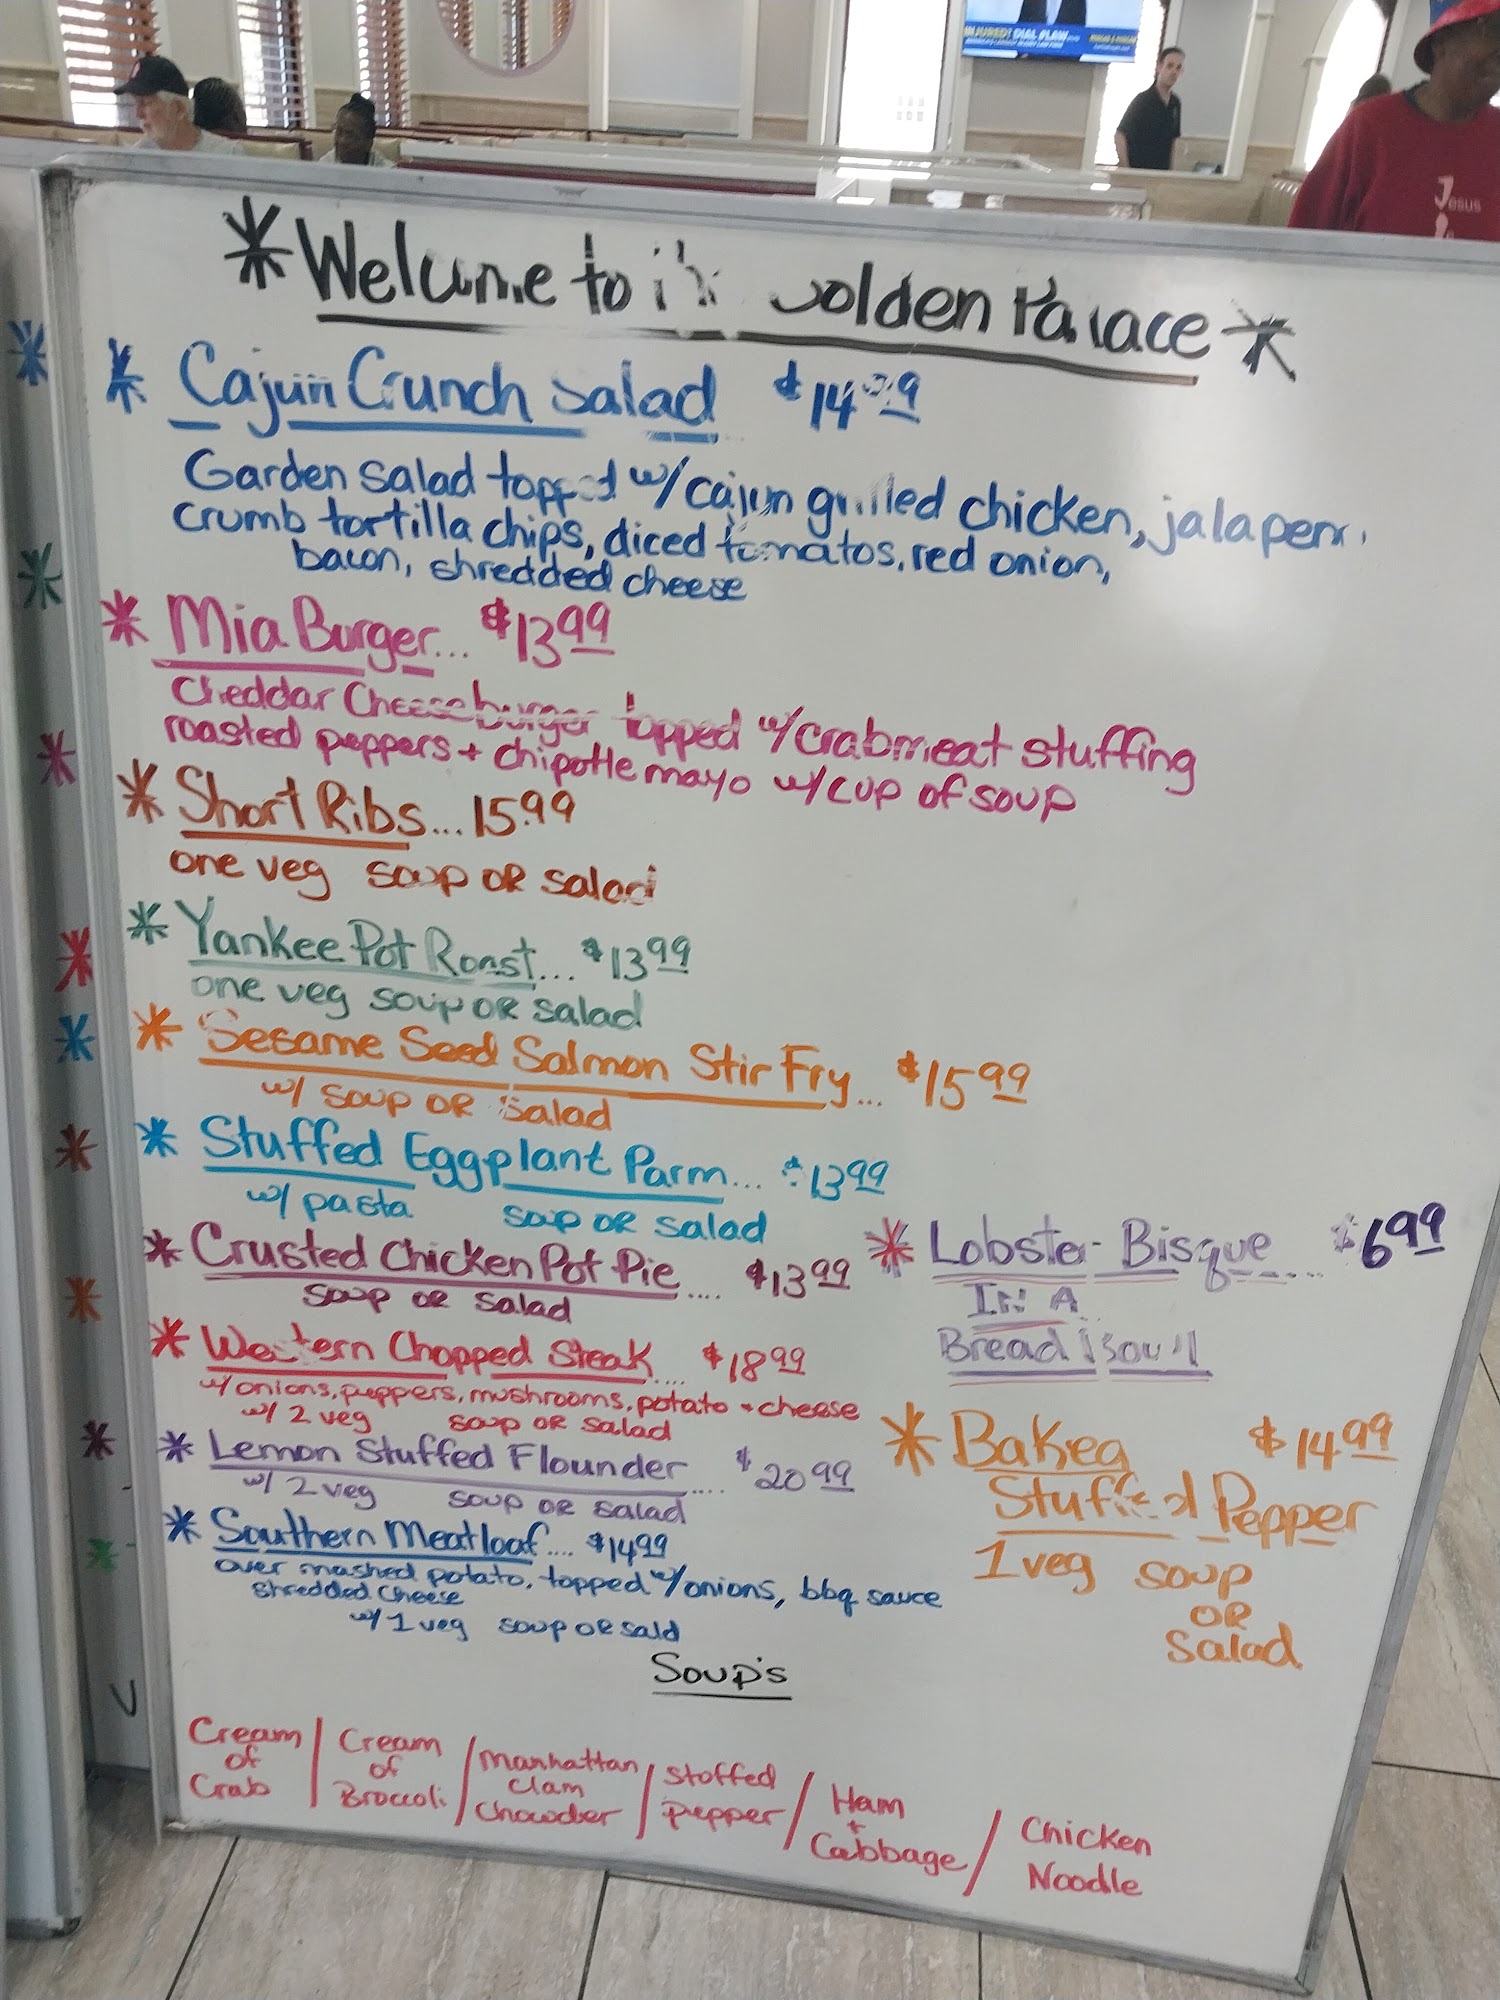 INJURED? DIAL #LAW
Jesus
*Welcome to the Golden Palace*
* Cajun Crunch Salad $14.99
Garden salad topped w/cajun grilled chicken, jalapeno
crumb tortilla chips, diced tomatos, red onion,
bacon, shredded cheese
* Mia Burger... $13.99
Cheddar Cheeseburger topped w/crabmeat stuffing
roasted peppers + chipotle mayo w/cup of soup
* Short Ribs... 15.99
one veg soup OR salad
* Yankee Pot Roast... $13.99
one veg soup OR salad
* Sesame Seed Salmon Stir Fry... $15.99
w/ soup OR salad
* Stuffed Eggplant Parm... $13.99
w/ pasta soup OR salad
* Crusted Chicken Pot Pie.... $13.99
soup OR salad
* Western Chopped Steak.... $18.99
w/onions, peppers, mushrooms, potato + cheese
w/ 2 veg soup OR salad
* Lemon Stuffed Flounder.... $20.99
w/ 2 veg soup OR salad
* Southern Meatloaf.... $14.99
over mashed potato, topped w/onions, bbq sauce
shredded cheese
w/ 1 veg soup OR sald
* Lobster Bisque.... $6.99
IN A
Bread Bowl
* Baked $14.99
Stuffed Pepper
1 veg soup
OR
Salad
Soup's
Cream
of
Crab /
Cream
of
Broccoli /
Manhattan
Clam
Chowder /
Stoffed
pepper /
Ham
+
Cabbage /
Chicken
Noodle